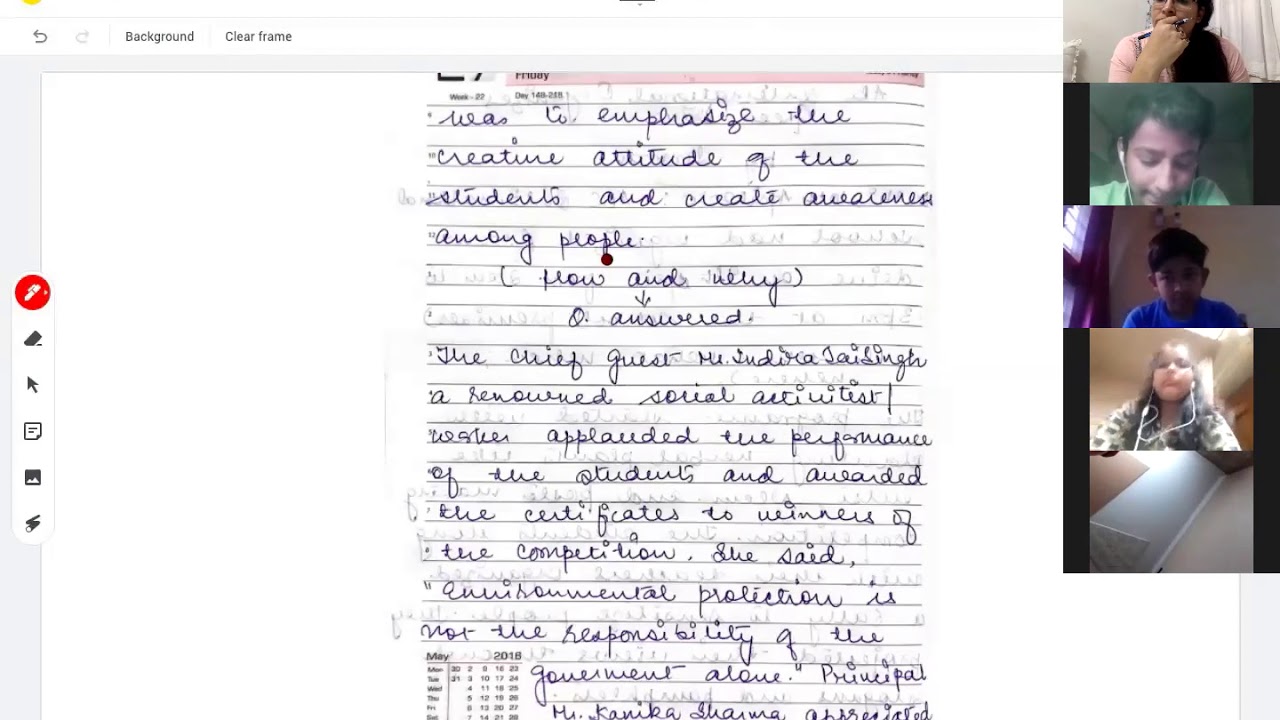 Background
Clear frame
Friday
Week - 22
Day 148-218
was to emphasize the
creative attitude of the
students and create awareness
among people.
( How and why )
Q. answered.
The Chief Guest Mr. Indira JaiSingh
a renowned social activitest/
worker applauded the performance
of the students and awarded
the certificates to winners of
the competition. She said,
" Environmental protection is
not the responsibility of the
government alone." Principal
Mr. Kanika Sharma appreciated
May 2016
Mon 30 2 9 16 23
Tue 31 3 10 17 24
Wed 4 11 18 25
Thu 5 12 19 26
Fri 6 13 20 27
Sat 7 14 21 28